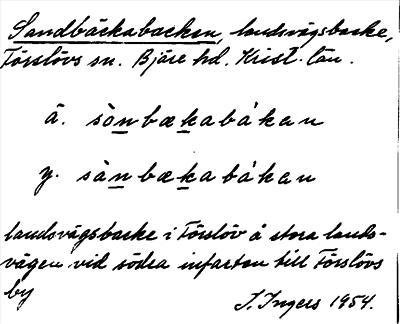 Sandbäckabacken, landsvägsbacke,
Förslövs sn. Bjäre hd. Krist. län.
ä. sȧnbækabákan
y. sȧnbækabákan
landsvägsbacke i Förslöv å stora lands-
vägen vid södra infarten till Förslövs
by
I. Ingers 1954.